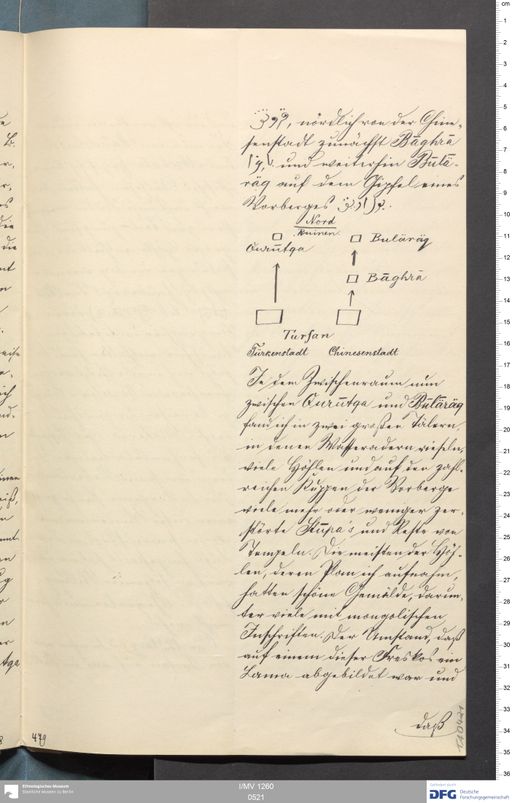 nördlich von der Chine-
senstadt zunächst Bāghrā
und weiterhin Bulā-
räg auf dem Gipfel eines
Vorberges
Nord
Ruinen.
Qurūtqa Buläräg
Bāghrā
Turfan
Türkenstadt Chinesenstadt
In dem Zwischenraum nun
zwischen Qurūtqa und Bŭlāräg
fand ich in zwei großen Tälern,
in denen Wasseradern rieseln,
viele Höhlen und auf den zahl-
reichen Kuppen der Vorberge
viele mehr oder weniger zer-
störte Stūpa's und Reste von
Tempeln. Die meisten der Höh-
len, deren Plan ich aufnahm,
hatten schöne Gemälde, darun-
ter viele mit mongolischen
Inschriften. Der Umstand, daß
auf einem dieser Freskos ein
Lama abgebildet war und
daß
479
I/MV 1260
0521
Ethnologisches Museum
Staatliche Museen zu Berlin
DFG Deutsche
Forschungsgemeinschaft